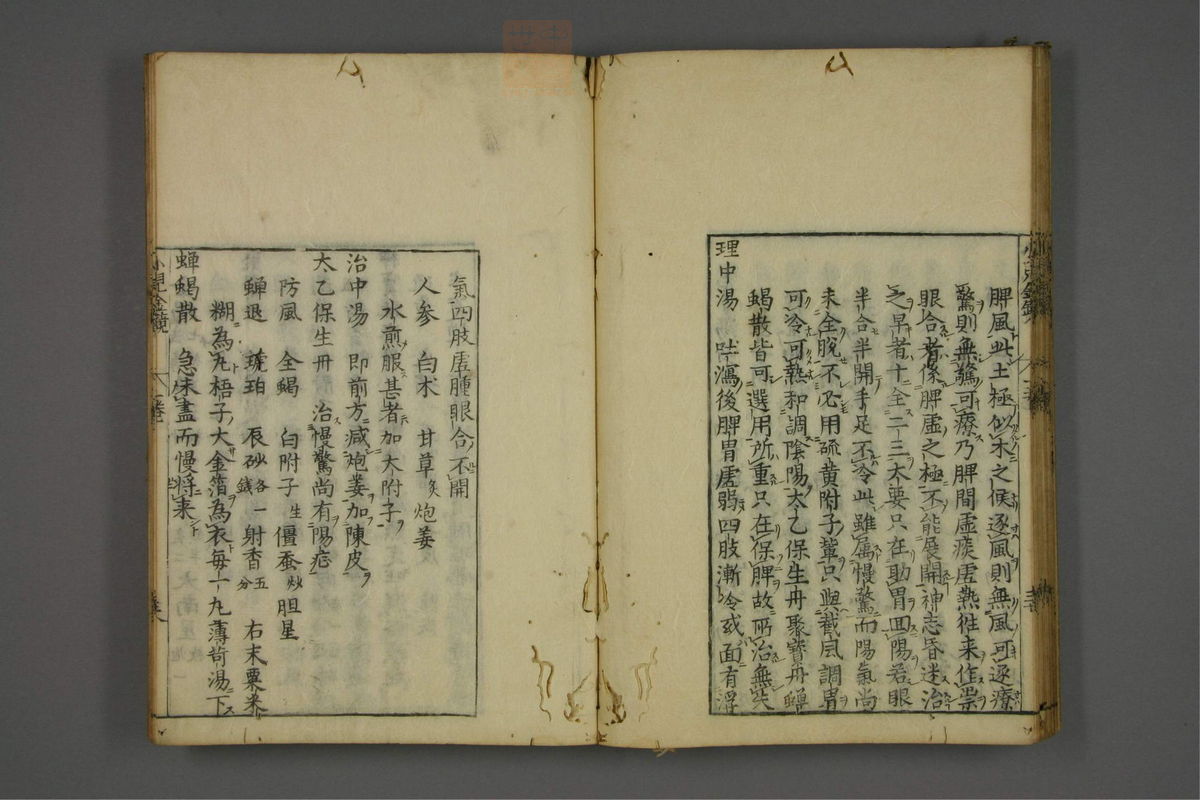 脾風此土極似木之候逐風則無風可逐療
驚則無驚可療乃脾間虛痰虛熱往来作祟
眼合者係脾虛之極不能展開神志昏迷治
之早者十全二三大要只在助胃回陽若眼
半合半開手足不冷此雖属慢驚而陽氣尚
未全脫不必用硫黄附子輩只與截風調胃
可冷可熱和調陰陽太乙保生丹聚寶丹蟬
蝎散皆可選用所重只在保脾故所治無失
理中湯 吐瀉後脾胃虛弱四肢漸冷或面有浮
氣四肢虛腫眼合不開
人参 白朮 甘草炙 炮姜
水煎服甚者加大附子
治中湯 即前方減炮姜加陳皮
太乙保生丹 治慢驚尚有陽症
防風 全蝎 白附子生 僵蚕炒 胆星
蝉退 琥珀 辰砂各一錢 射香五分 右末粟米
糊為丸梧子大金箔為衣毎一丸薄苛湯下
蝉蝎散 急未盡而慢将来
小兒全鏡